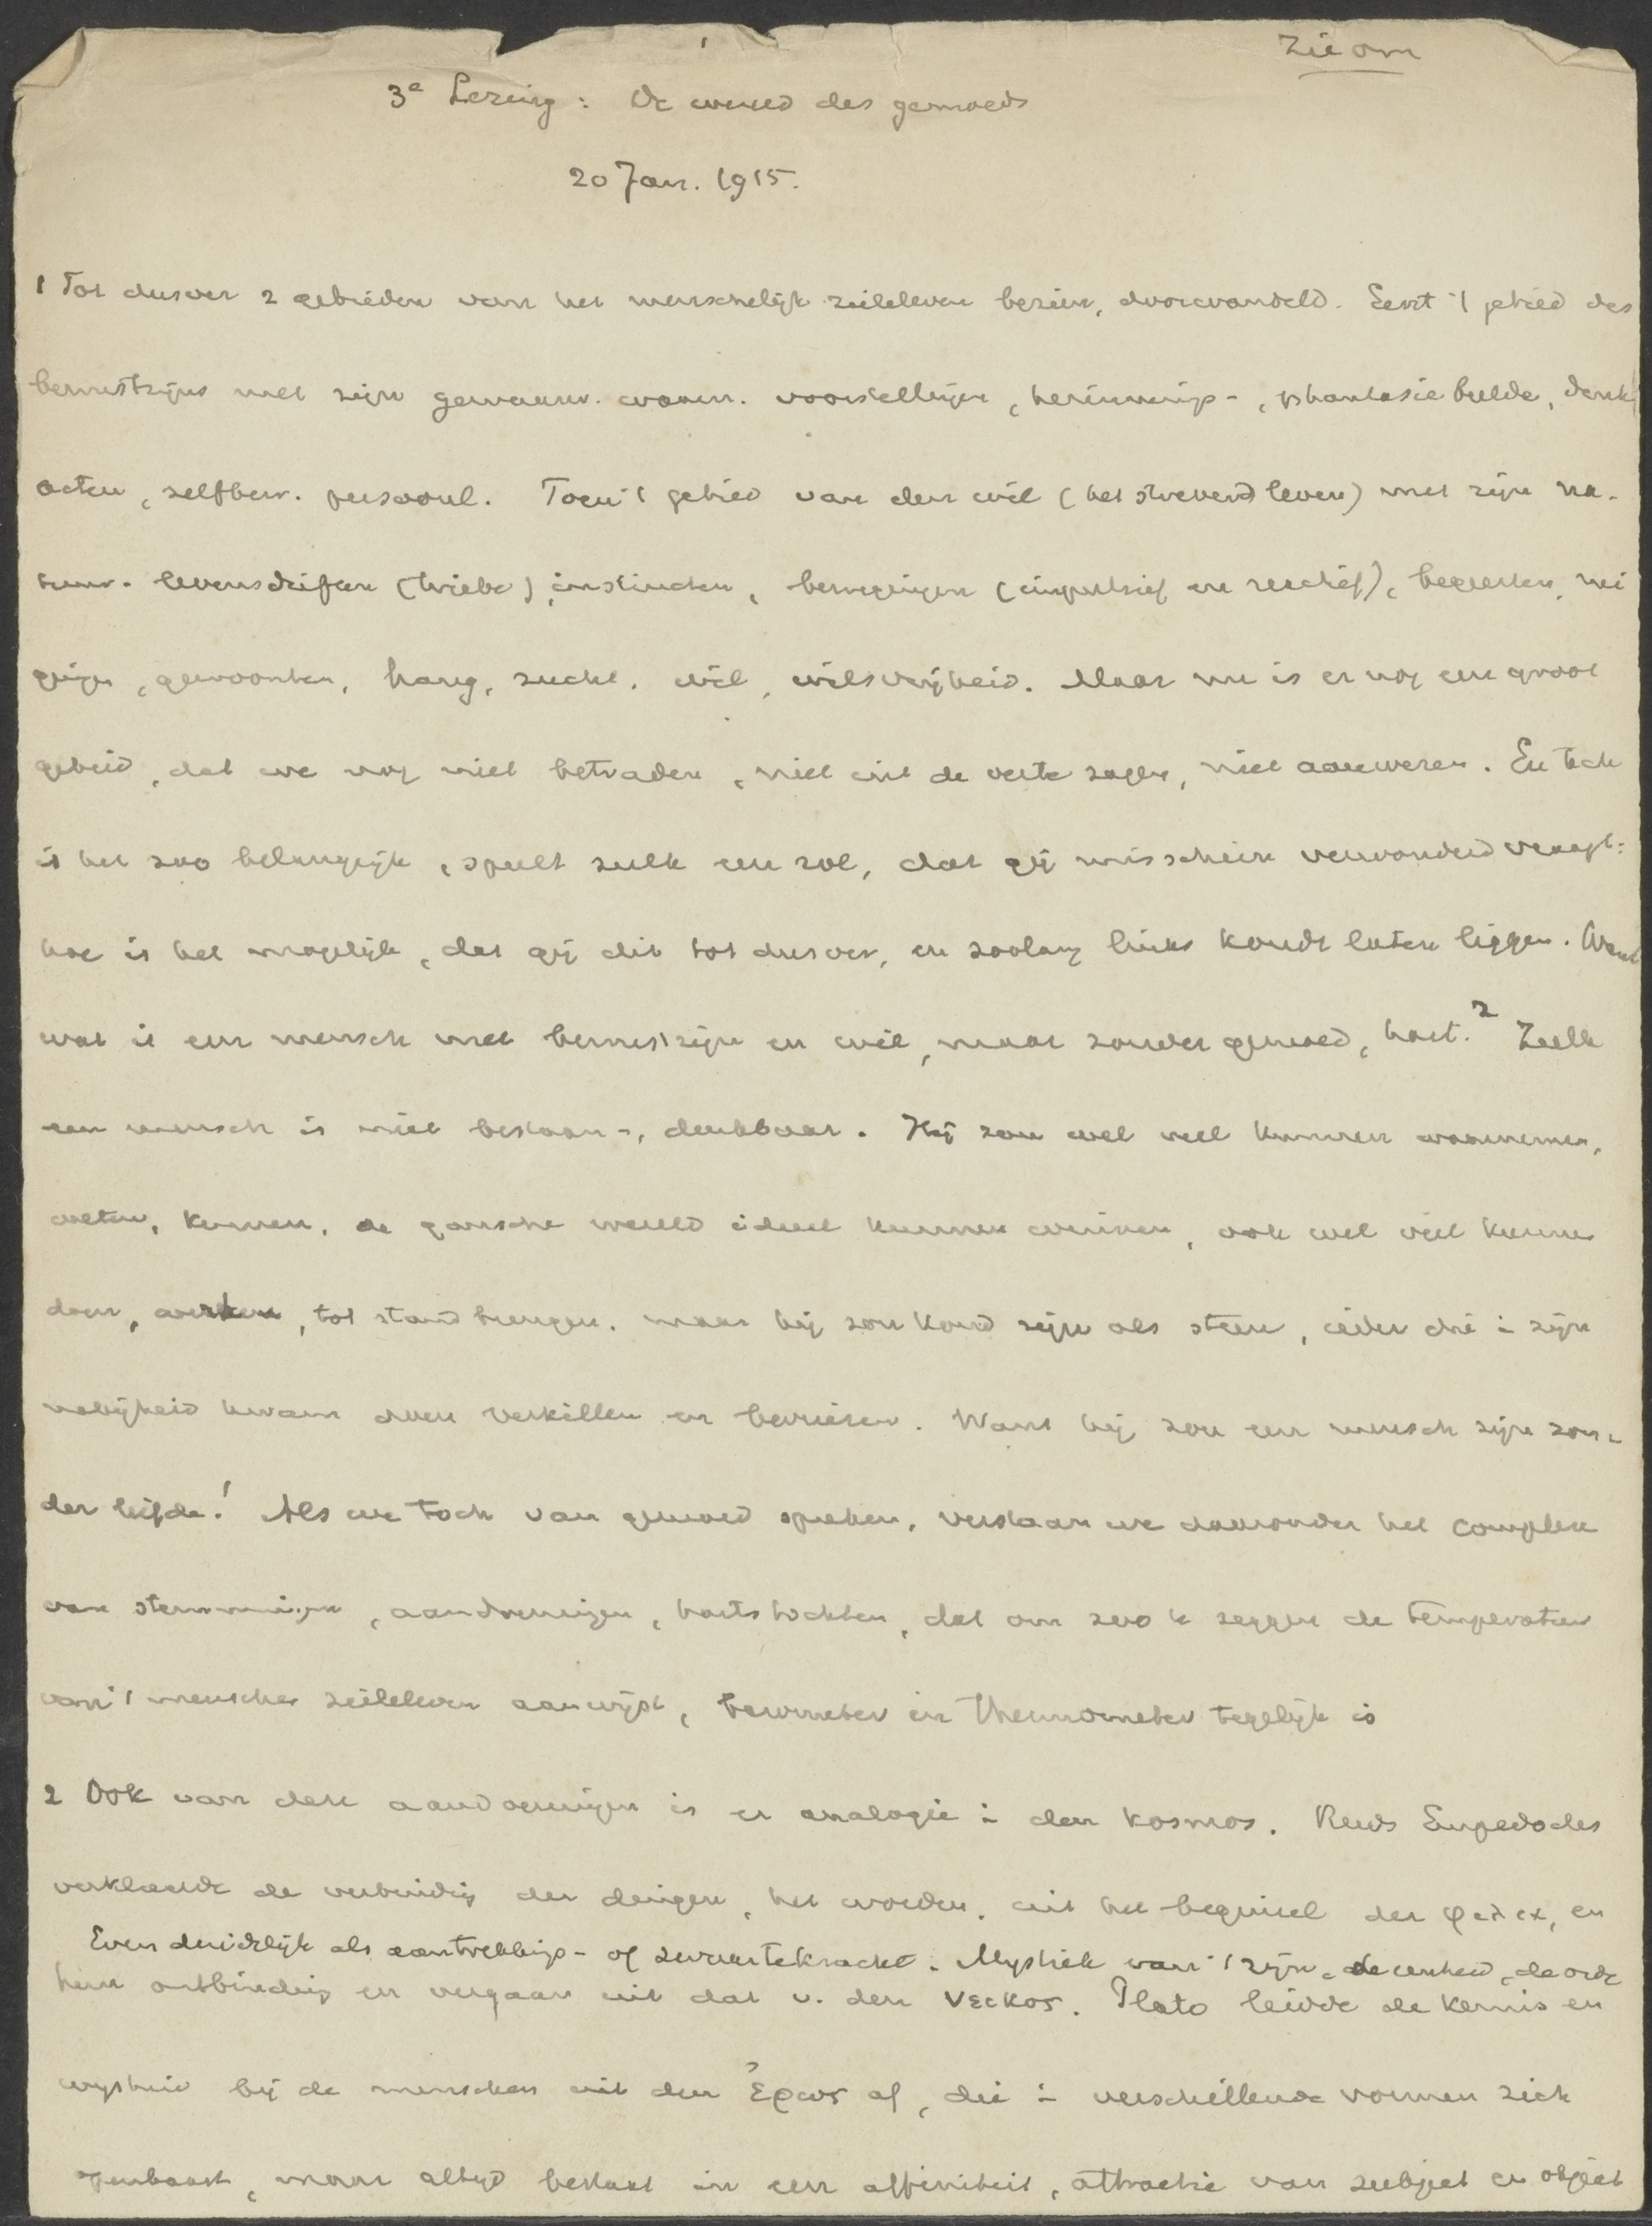 Zie om
3e Lezing: De wereld des gemoeds
20 Jan. 1915.
1 Tot dusver 2 gebieden van het menschelijk zieleleven bezien, doorwandeld. Eerst 't gebied des
bewustzijns met zijn gewaarw. waarn. voorstellingen, herinnerings-, phantasie beelden, denk
acten, zelfbew. persoonl. Toen 't gebied van den wil (het strevend leven) met zijn na-
tuur- levensdriften (triebe), instincten, bewegingen (impulsief en reactief), begeerten, nei
gingen, gewoonten, hang, zucht, wil, wilsvrijheid. Maar nu is er nog een groot
gebied, dat we nog niet betraden, niet uit de verte zagen, niet aanwezen. En toch
is het zoo belangrijk, speelt zulk een rol, dat gij misschien verwonderd vraagt:
hoe is het mogelijk, dat gij dit tot dusver, en zoolang links kondt laten liggen. Want
wat is een mensch met bewustzijn en wil, maar zonder gemoed, hart? Zulk
een mensch is niet bestaan-, denkbaar. Hij zou wel veel kunnen waarnemen,
weten, kennen, de gansche wereld ideel kunnen winnen, ook wel veel kunnen
doen, werken, tot stand brengen, maar hij zou koud zijn als steen, ieder die i zijn
nabijheid kwam doen verkillen en bevriezen. Want hij zou een mensch zijn zon-
der liefde! Als we toch van gemoed spreken, verstaan we daaronder het complex
van stemmingen, aandoeningen, hartstochten, dat om zoo te zeggen de temperatuur
van 't menschen zieleleven aanwijst, barometer en thermometer tegelijk is
2 Ook van deze aandoeningen is er analogie i den kosmos. Reeds Empedocles
verklaarde de verbinding der dingen, het worden, uit het beginsel der φιλια, en
Even duidelijk als aantrekkings- of zwaartekracht. Mystiek van 't zijn, de eenheid, de orde
hun ontbinding en vergaan uit dat v. den νεικος. Plato leidde de kennis en
wijsheid bij de menschen uit den Ἐρως af, die i verschillende vormen zich
openbaart, maar altijd bestaat in een affiniteit, attractie van subject en object